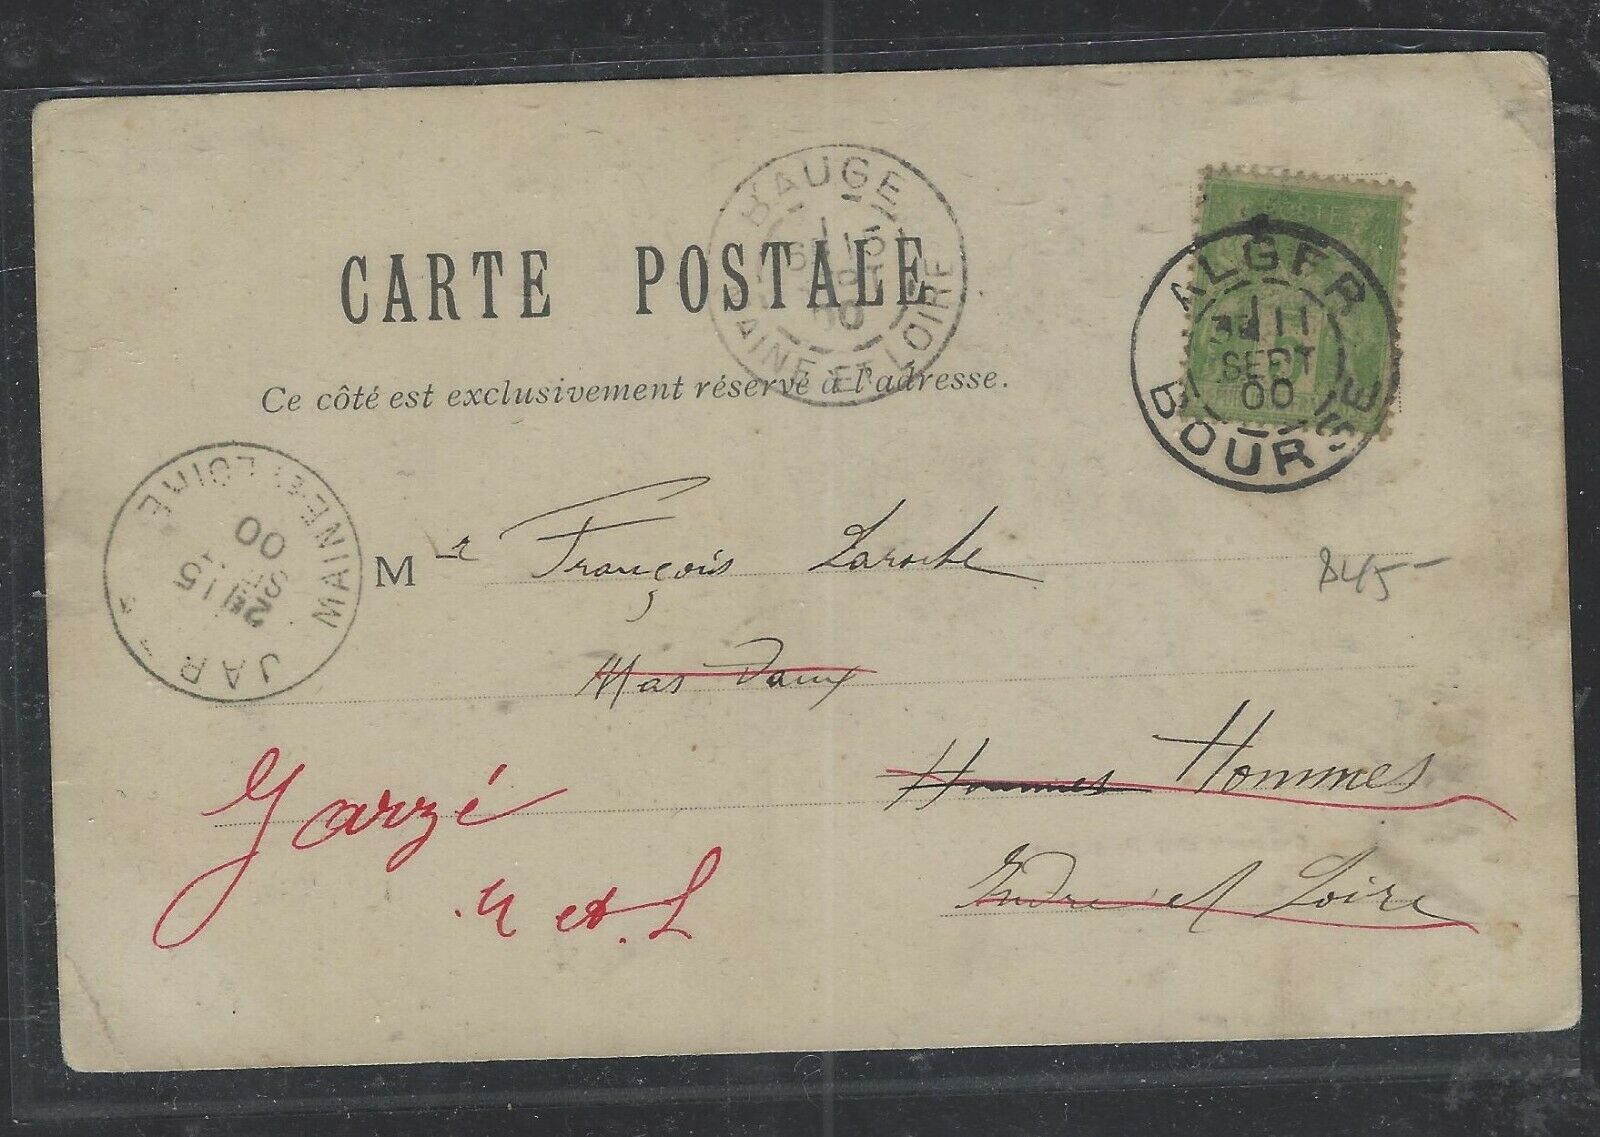 BAUGE
15
00
MAINE ET LOIRE
CARTE POSTALE
Ce côté est exclusivement réservé à l'adresse.
ALGER
3E 11
SEPT
00
BOURSE
MAINE ET LOIRE
00
SEPT
15
2E
JAR
Mr François Laroche
845-
Mas Daux
Hommes Hommes
Jarzé
Indre et Loire
M et L